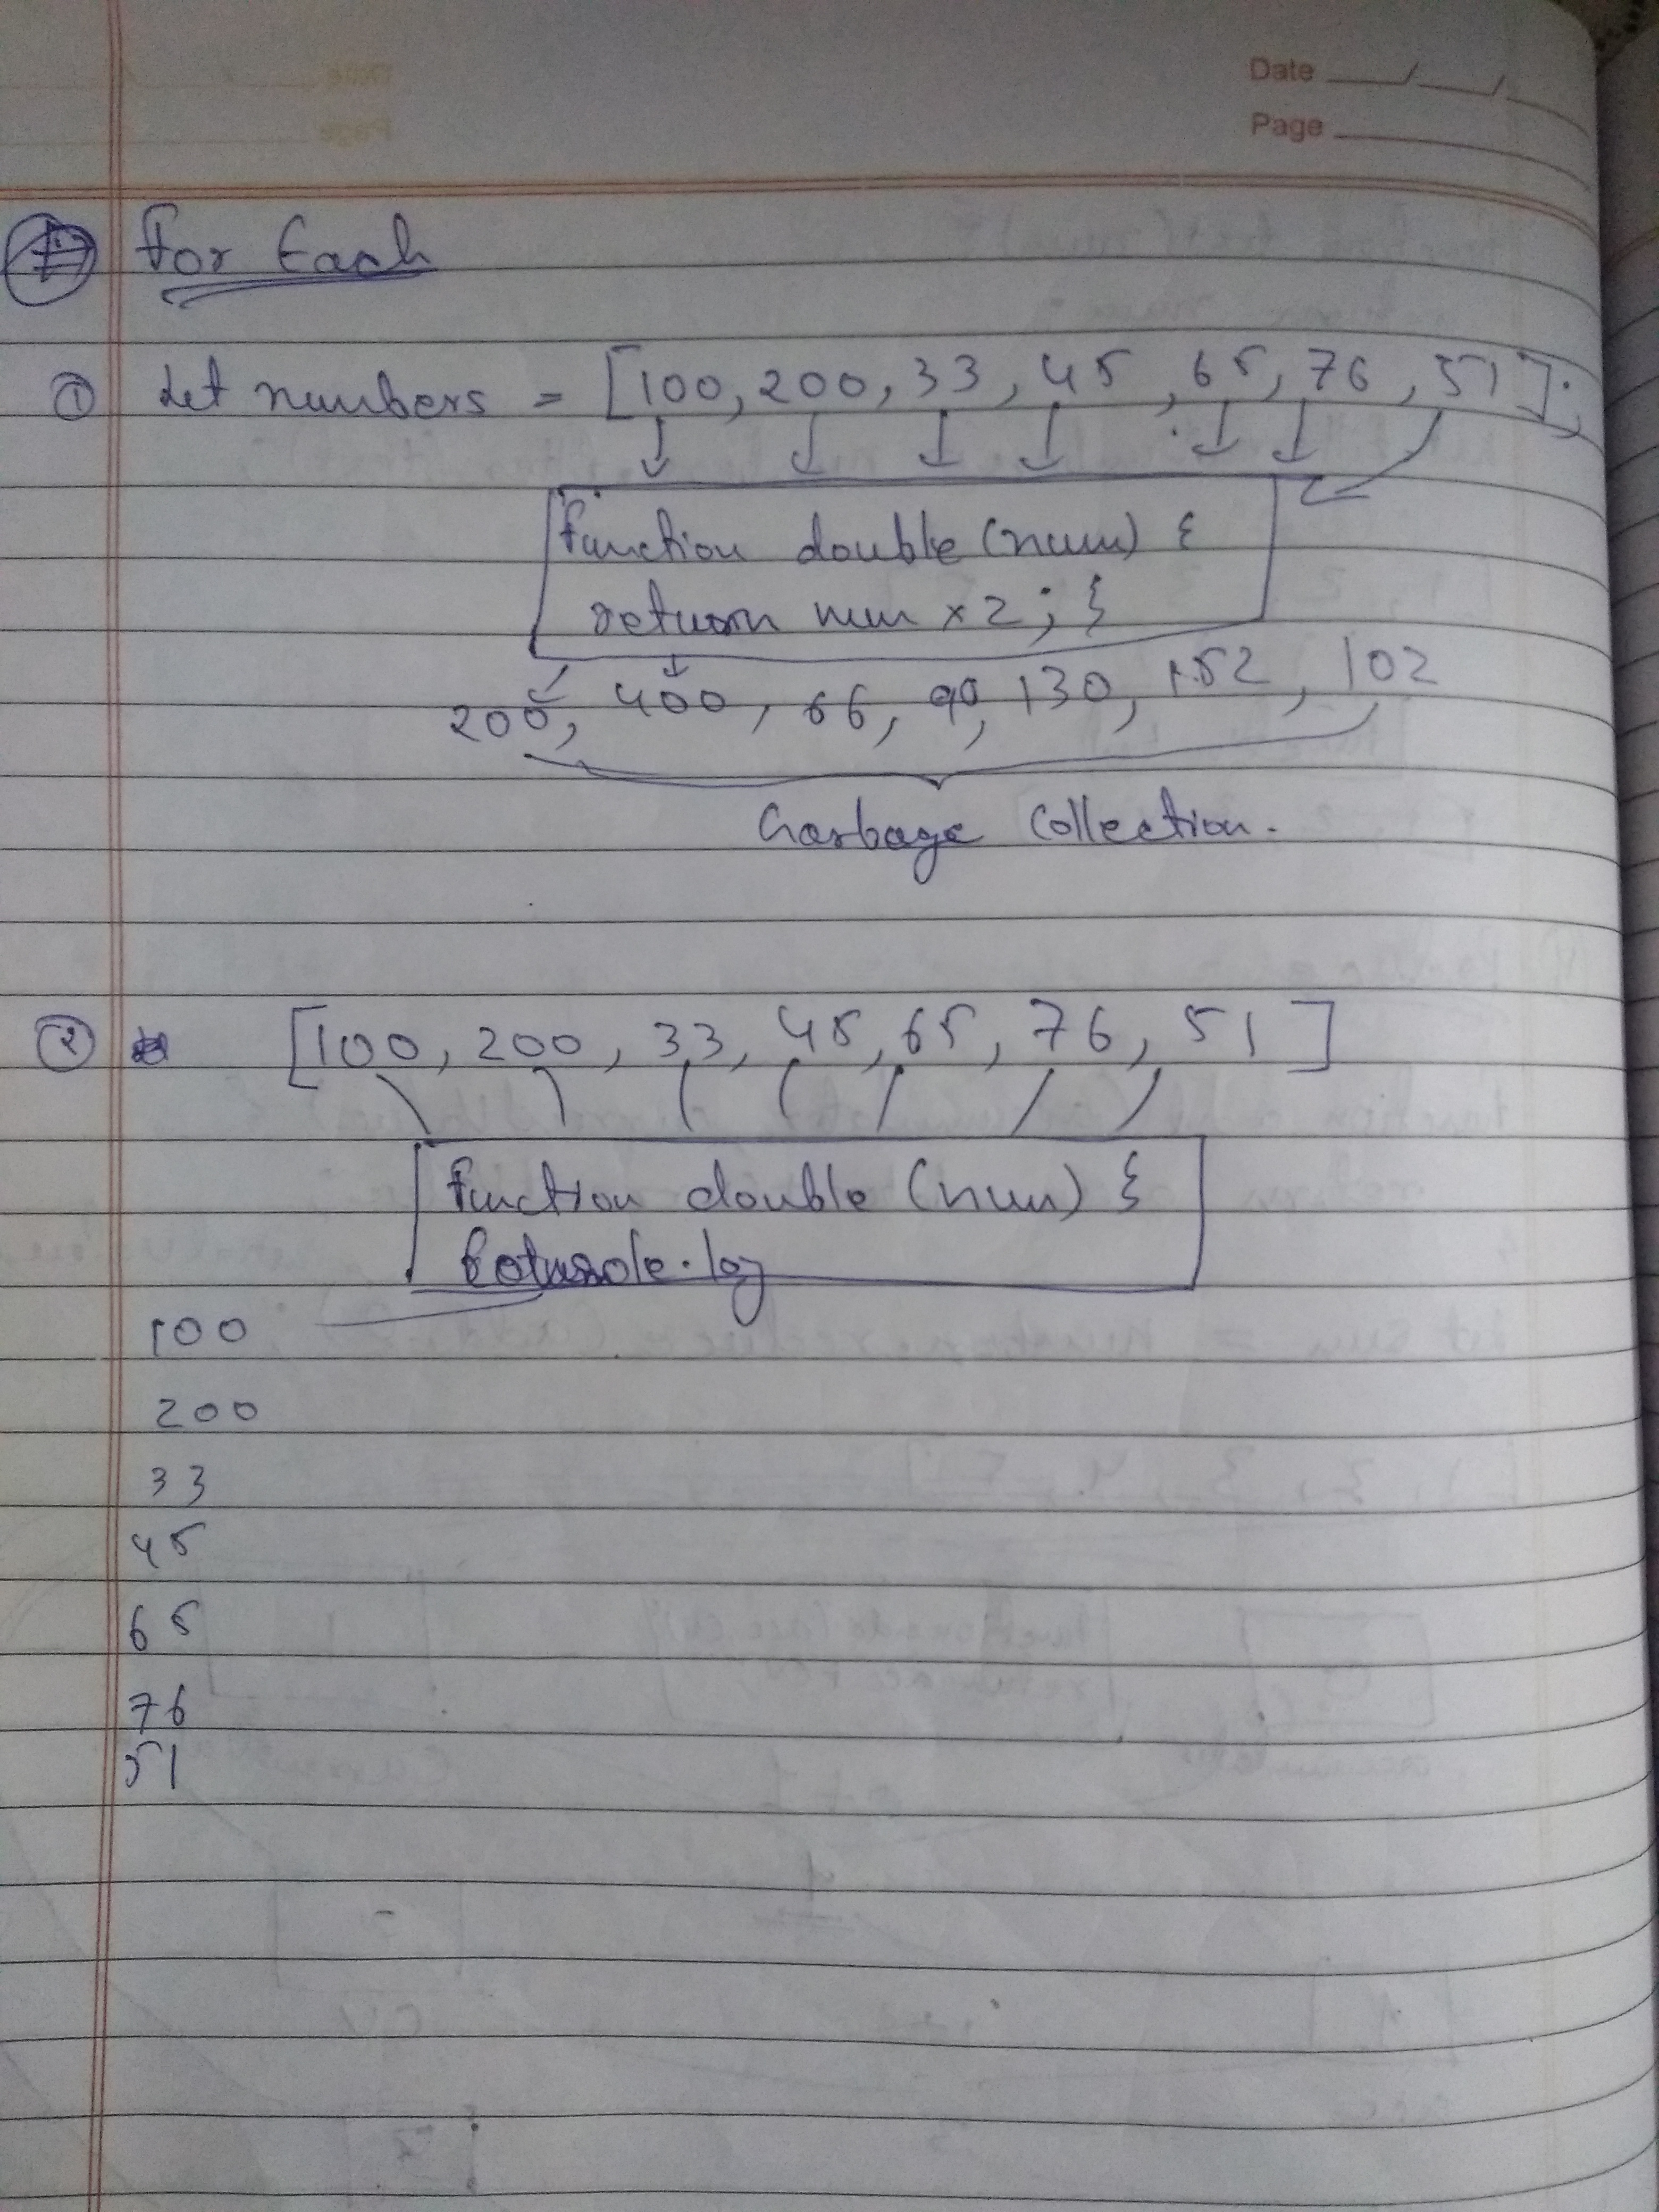 Date
Page
For Each
① Let numbers = [100, 200, 33, 45, 65, 76, 51];
function double (num) {
return num × 2; }
200, 400, 66, 90, 130, 152, 102
Garbage Collection.
② [100, 200, 33, 45, 65, 76, 51]
function double (num) {
.log
100
200
33
45
65
76
51